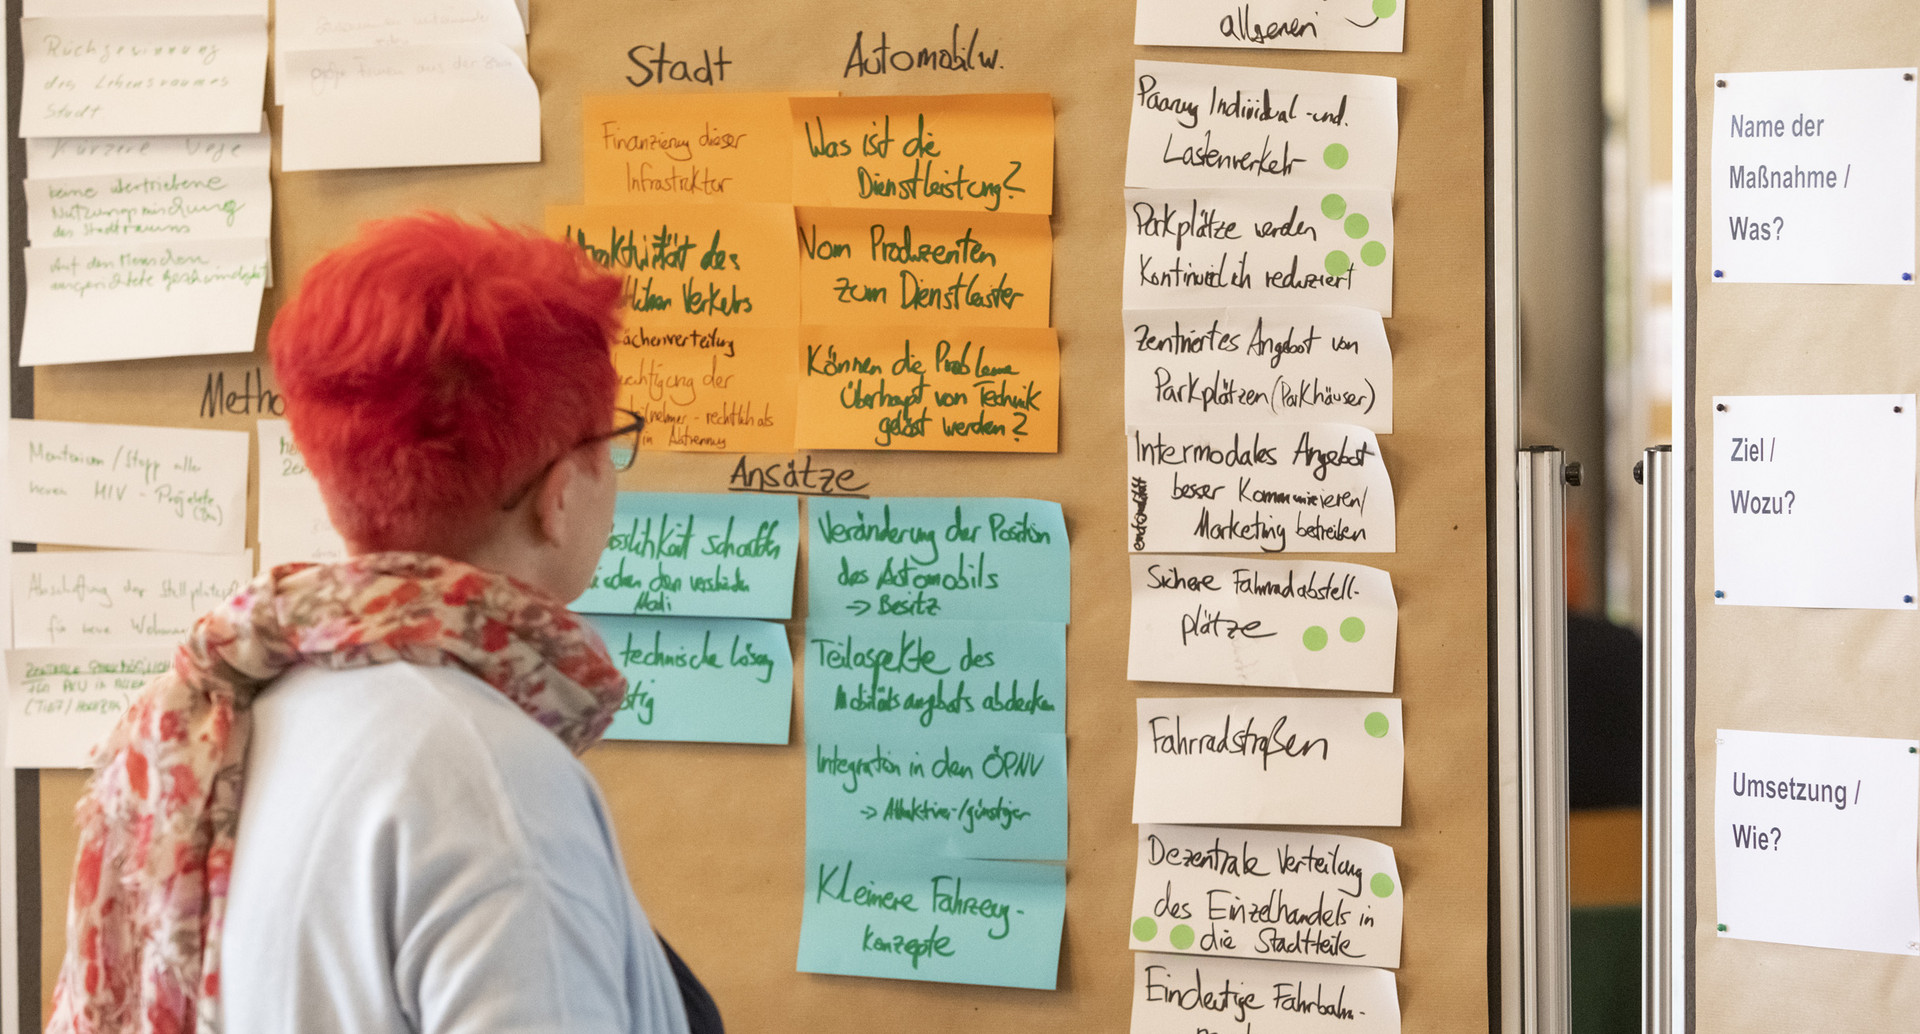 Rückgewinnung
des Lebensraumes
Stadt
Kürzere Wege
keine übertriebene
Nutzungsmischung
des Stadtraums
Auf den Menschen
ausgerichtete Geschwindigkeit
große Firmen aus der
Metho
Moratorium / Stopp aller
MIV - Projekte
Abschaffung der Stellplatzpf
für neue Wohnun
Stadt
Finanzierung dieser
Infrastruktur
Attraktivität des
Verkehrs
ächenverteilung
echtigung der
teilnehmer - rechtlich als
in Abtrennung
Automobilw.
Was ist die
Dienstleistung?
Vom Produzenten
zum Dienstleister
Können die Probleme
überhaupt von Technik
gelöst werden?
Ansätze
öglichkeit schaffen
zwischen den verschieden
Modi
technische Lösung
stig
Veränderung der Position
des Automobils
-> Besitz
Teilaspekte des
Mobilitätsangebots abdecken
Integration in den ÖPNV
-> Attraktiver/günstiger
Kleinere Fahrzeug-
konzepte
allgemein
Paarung Individual- und.
Lastenverkehr
Parkplätze werden
Kontinuierlich reduziert
Zentriertes Angebot von
Parkplätzen (Parkhäuser)
Intermodales Angebot
besser Kommunizieren/
Marketing betreiben
Sichere Fahrradabstell-
plätze
Fahrradstraßen
Dezentrale Verteilung
des Einzelhandels in
die Stadtteile
Eindeutige Fahrbahn-
Name der
Maßnahme /
Was?
Ziel /
Wozu?
Umsetzung /
Wie?